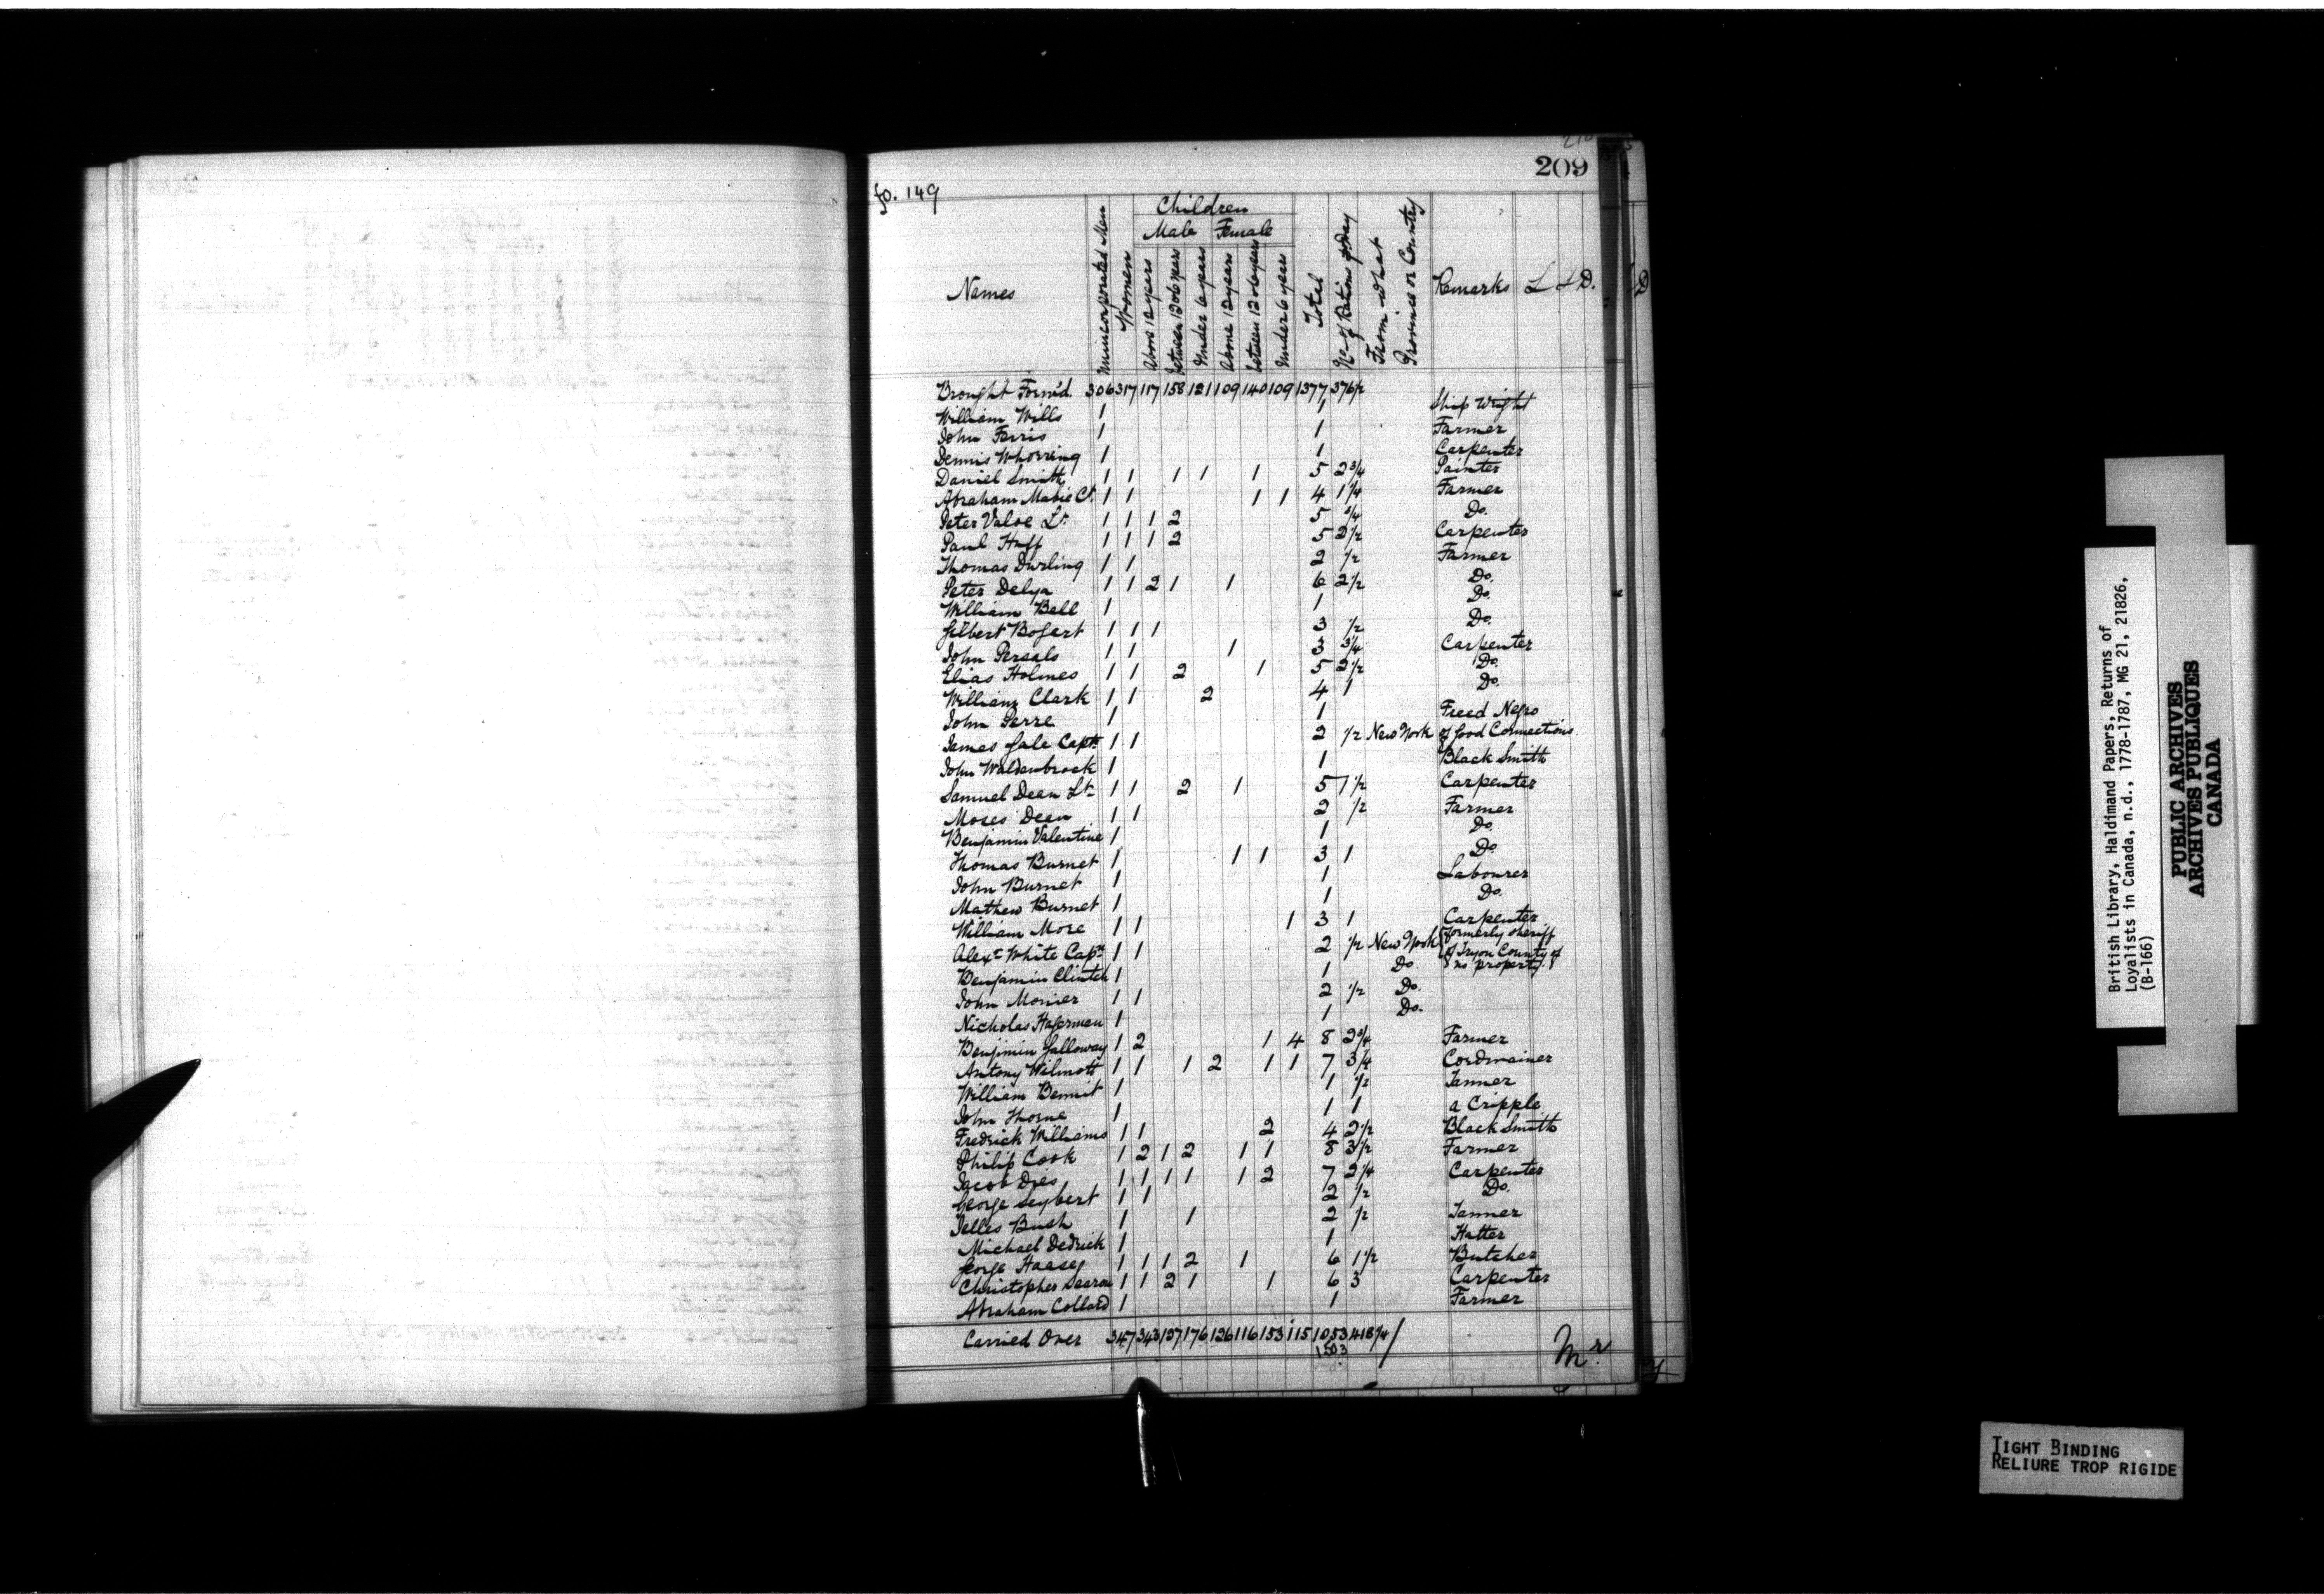 209
fo. 149
Children
Male Female
Names Unincorporated Men Women Above 12 years between 12 & 6 years Under 6 years Above 12 years between 12 & 6 years Under 6 years Total No. of Rations pr Day From what Province or Country Remarks L S D.
Brought Forw'd. 306 317 117 158 121 109 140 109 1377 376 1/2
William Wills 1 1 Ship Wright
John Ferris 1 1 Farmer
Dennis Whoering 1 1 Carpenter
Daniel Smith 1 1 1 1 1 5 2 3/4 Painter
Abraham Mabie Ct. 1 1 1 1 4 1 1/4 Farmer
Peter Valoe Lt. 1 1 1 2 5 3/4 Do.
Paul Huff 1 1 1 2 5 2 1/2 Carpenter
Thomas Durling 1 1 2 1/2 Farmer
Peter Delya 1 1 2 1 1 6 2 1/2 Do.
William Bell 1 1 Do.
Gilbert Bogert 1 1 1 3 1/2 Do.
John Persals 1 1 1 3 3/4 Carpenter
Elias Holmes 1 1 2 1 5 2 1/2 Do.
William Clark 1 1 2 4 1 Do.
John Perre 1 1 Freed Negro
James Gale Captn. 1 1 2 1/2 New York of good Connections.
John Waldenbrock 1 1 Black Smith
Samuel Dean Lt. 1 1 2 1 5 1 1/2 Carpenter
Moses Dean 1 1 2 1/2 Farmer
Benjamin Valentine 1 1 Do.
Thomas Burnet 1 1 1 3 1 Do.
John Burnet 1 1 Labourer
Mathew Burnet 1 1 Do.
William More 1 1 1 3 1 Carpenter
Alexr. White Capn. 1 1 2 1/2 New York formerly sheriff
of Tryon County of
no property.
Benjamin Clintch 1 1 Do.
John Monier 1 1 2 1/2 Do.
Nicholas Hagerman 1 1 Do.
Benjimin Galloway 1 2 1 4 8 2 3/4 Farmer
Antony Wilmott 1 1 1 2 1 1 7 3/4 Cordwainer
William Bennit 1 1 1/2 Tanner
John Thorne 1 1 1 a Cripple
Fredrick Williams 1 1 2 4 2 1/2 Black Smith
Philip Cook 1 2 1 2 1 1 8 3 1/2 Farmer
Jacob Dies 1 1 1 1 1 2 7 2 1/4 Carpenter
George Seybert 1 1 2 1/2 Do.
Jelles Bush 1 1 2 1/2 Tanner
Michael Dedrick 1 1 Hatter
George Haase 1 1 1 2 1 6 1 1/2 Butcher
Christopher 1 1 2 1 1 6 3 Carpenter
Abraham Collard 1 1 Farmer
Carried Over 347 343 127 176 126 116 153 115 1053 418 1/4
1503
Mr.
British Library, Haldimand Papers, Returns of
Loyalists in Canada, n.d., 1778-1787, MG 21, 21826,
(B-166)
PUBLIC ARCHIVES
ARCHIVES PUBLIQUES
CANADA
TIGHT BINDING
RELIURE TROP RIGIDE